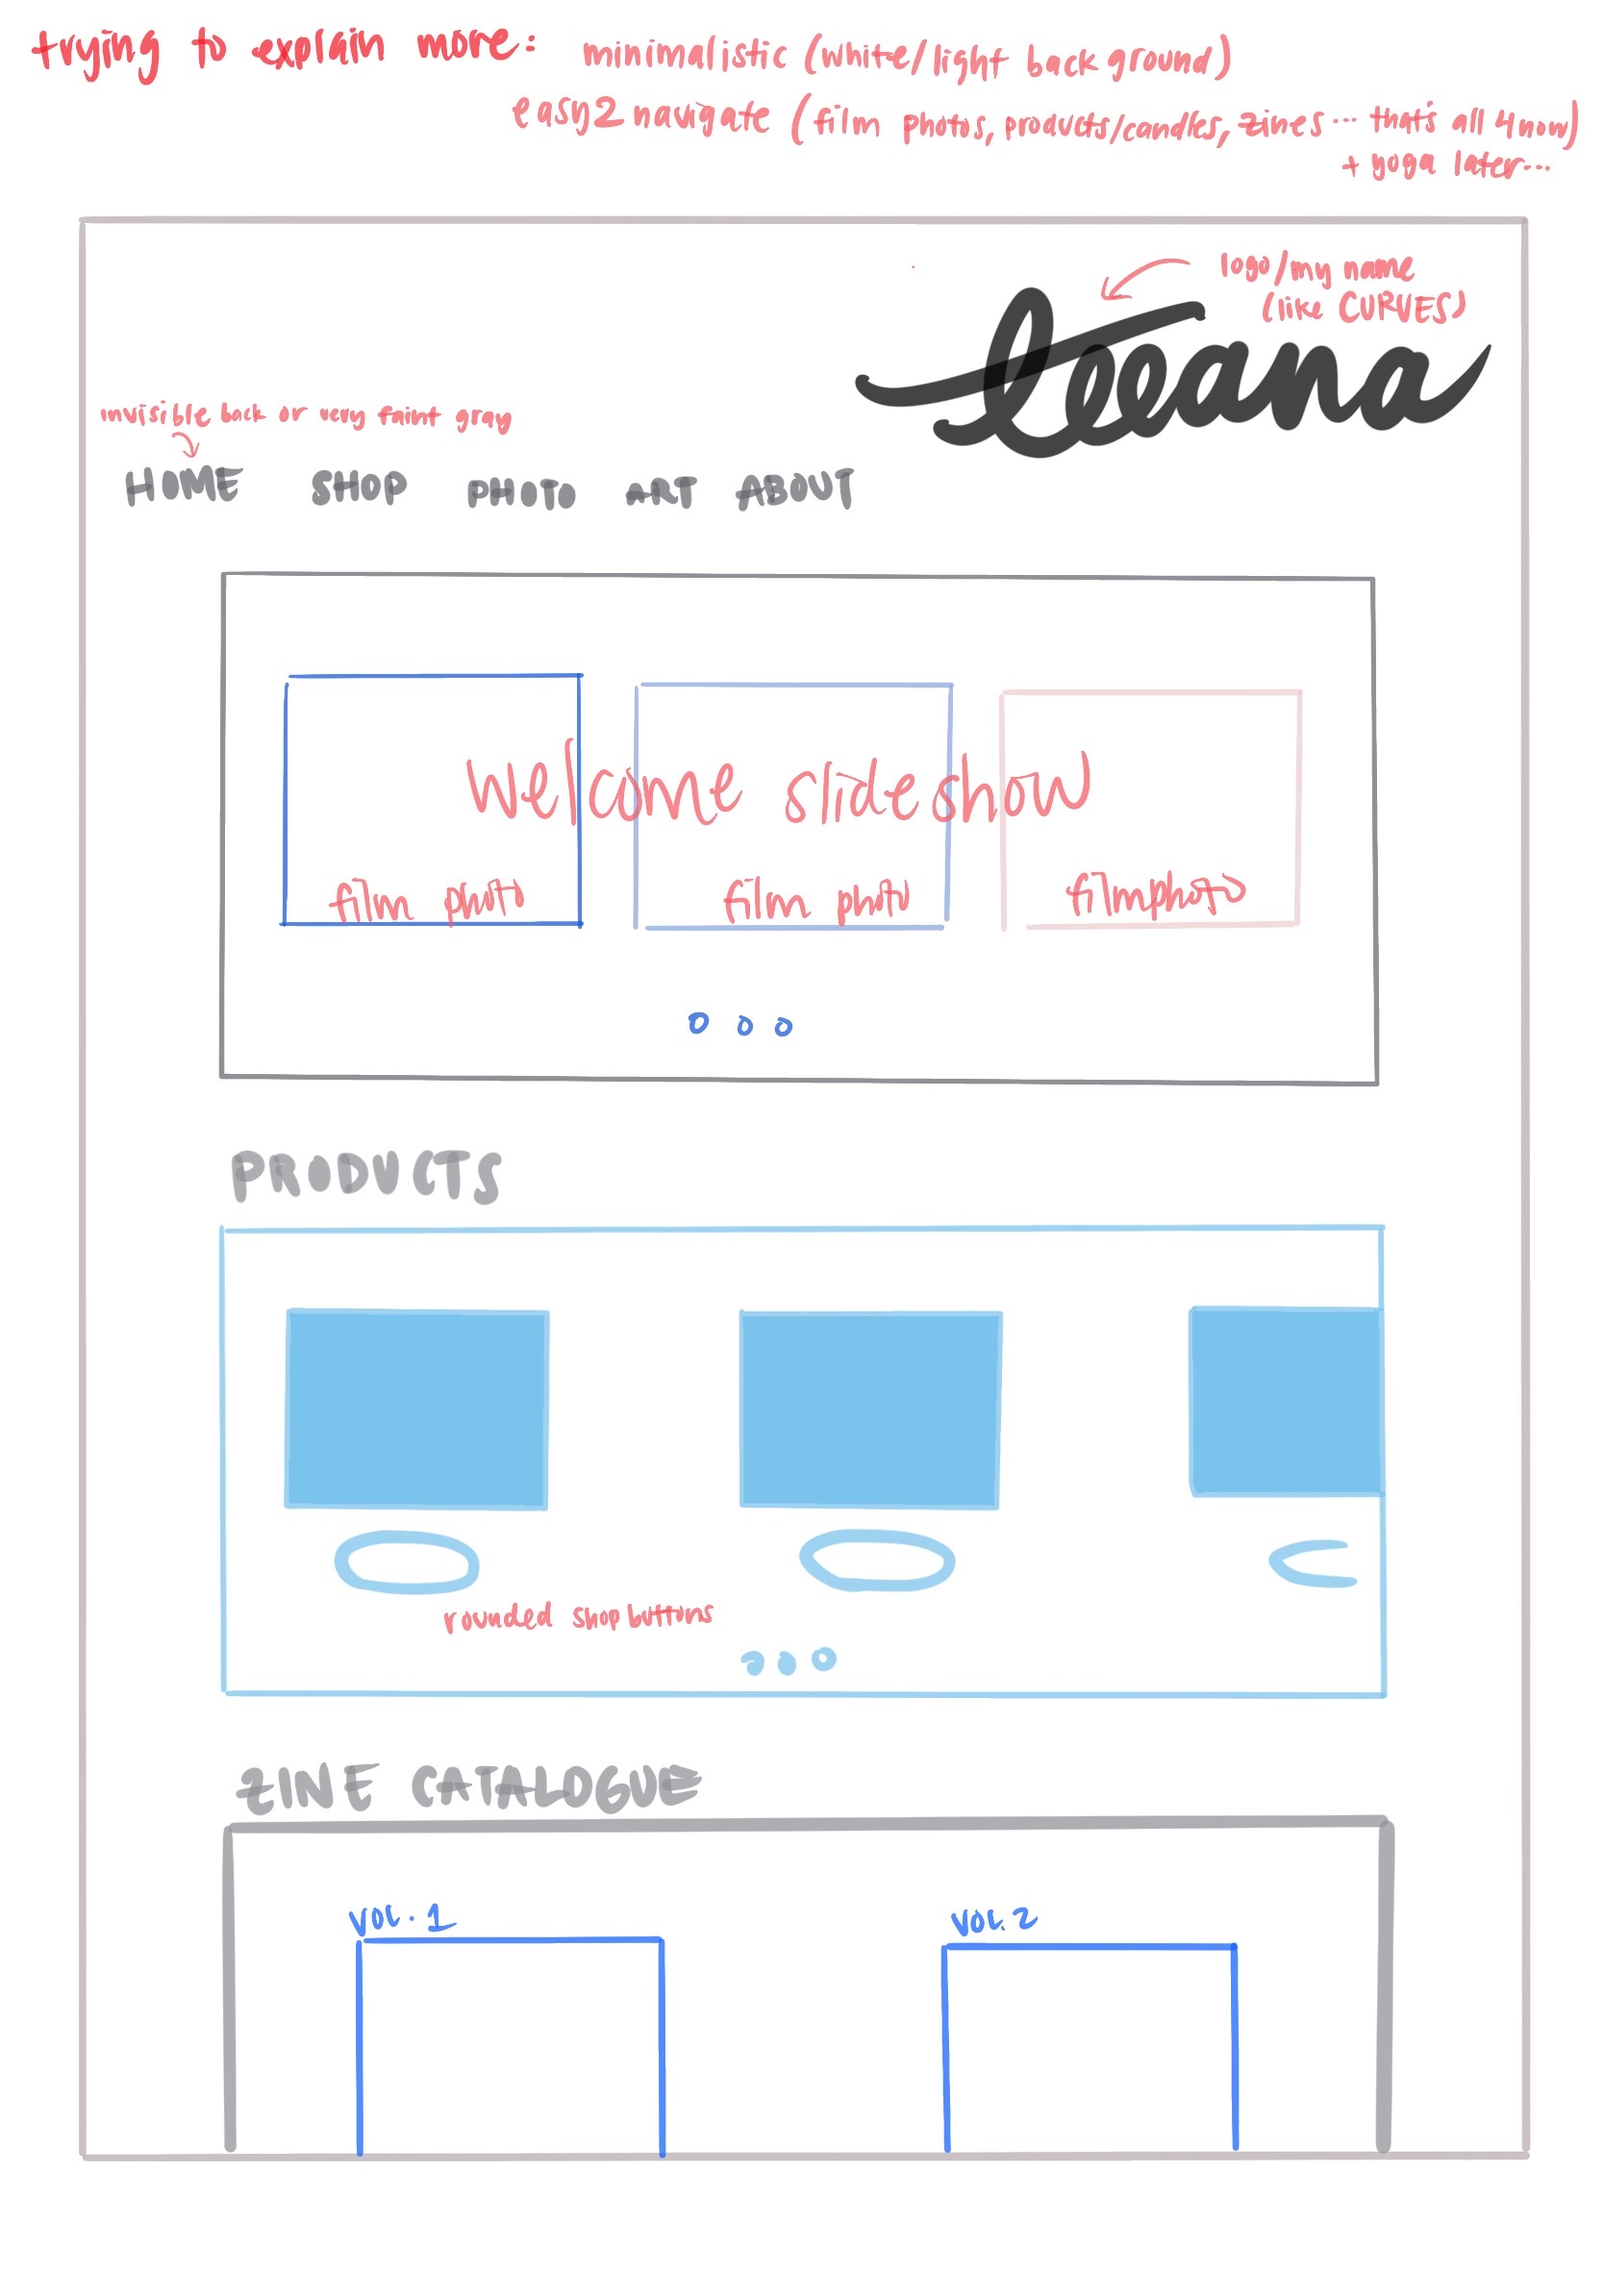 trying to explain more: minimalistic (white/light background)
easy2navigate (film photos, products/candles, zines... that's all 4now)
+ yoga later...
logo/my name
(like CURVES)
leeana
invisible back or very faint gray
HOME SHOP PHOTO ART ABOUT
welcome slideshow
film photo film photo film photo
PRODUCTS
rounded shop buttons
ZINE CATALOGUE
VOL. 1 VOL. 2